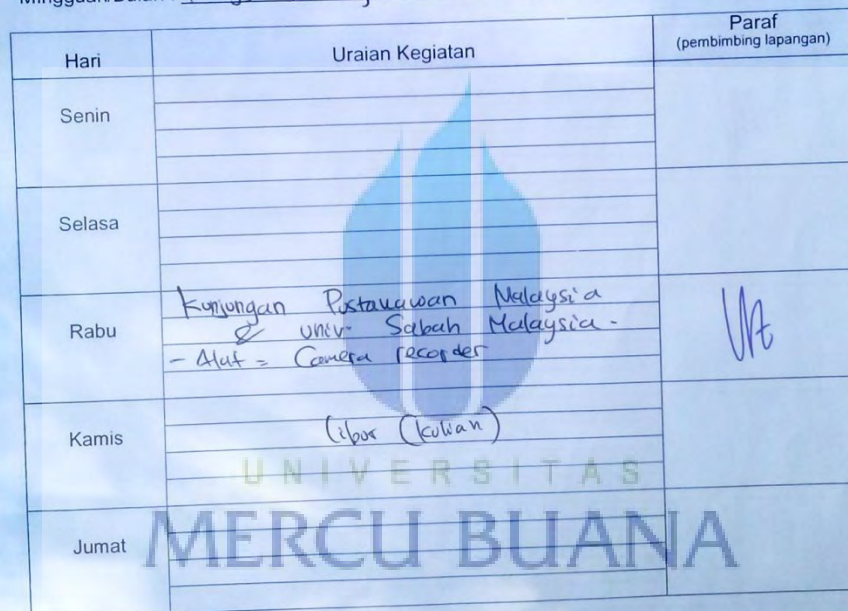 Mingguan/Bulan
Hari
Uraian Kegiatan
Paraf
(pembimbing lapangan)
Senin
Selasa
Rabu
Kunjungan Pustakawan Malaysia
& Univ. Sabah Malaysia.
- Alat = Camera recorder
Kamis
Libur (kuliah)
Jumat
UNIVERSITAS
MERCU BUANA